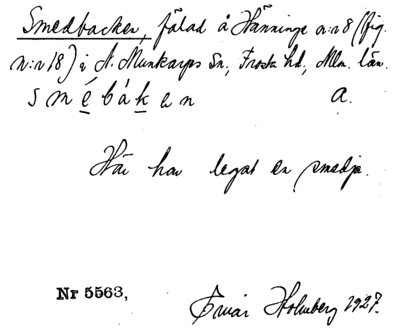 Smedbacken, fälad å Hänninge n:r 8 (fig.
n:r 18) i N. Munkarps sn, Frosta hd, Mlm. län.
s m é b á k e n a.
Här har legat en smedja.
Nr 5563,
Einar Holmberg 1927.